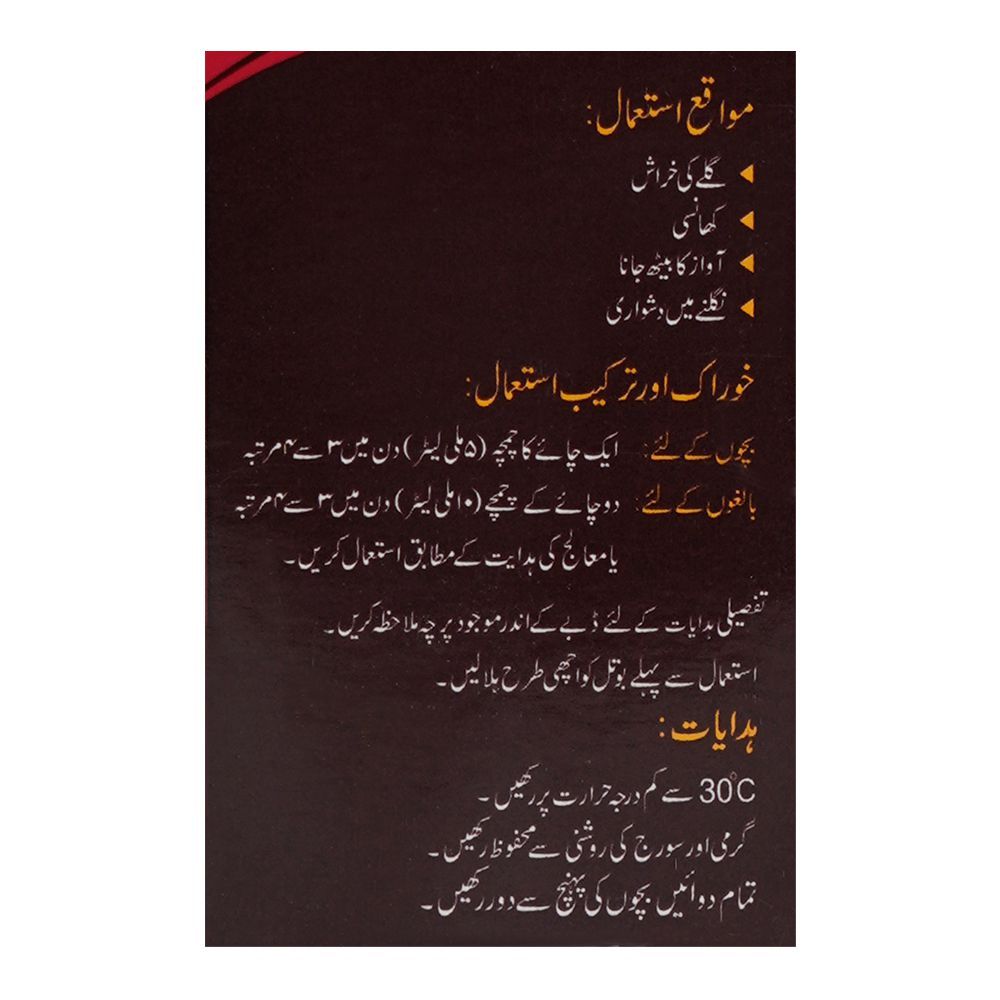 مواقع استعمال:
◄ گلے کی خراش
◄ کھانسی
◄ آواز کا بیٹھ جانا
◄ نگلنے میں دشواری
خوراک اور ترکیب استعمال:
بچوں کے لئے: ایک چائے کا چمچہ (۵ ملی لیٹر) دن میں ۳ سے ۴ مرتبہ
بالغوں کے لئے: دو چائے کے چمچے (۱۰ ملی لیٹر) دن میں ۳ سے ۴ مرتبہ
یا معالج کی ہدایت کے مطابق استعمال کریں۔
تفصیلی ہدایات کے لئے ڈبے کے اندر موجود پرچہ ملاحظہ کریں۔
استعمال سے پہلے بوتل کو اچھی طرح ہلا لیں۔
ہدایات:
30°C سے کم درجہ حرارت پر رکھیں۔
گرمی اور سورج کی روشنی سے محفوظ رکھیں۔
تمام دوائیں بچوں کی پہنچ سے دور رکھیں۔